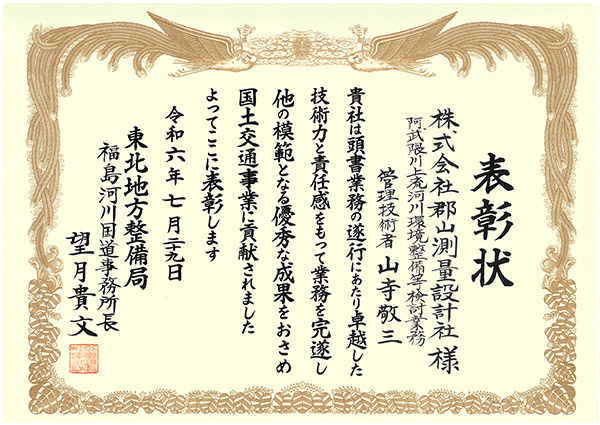 表彰状
株式会社郡山測量設計社 様
阿武隈川上流河川環境整備等検討業務
管理技術者 山寺敬三
貴社は頭書業務の遂行にあたり卓越した
技術力と責任感をもって業務を完遂し
他の模範となる優秀な成果をおさめ
国土交通事業に貢献されました
よってここに表彰します
令和六年七月二九日
東北地方整備局
福島河川国道事務所長
望月貴文